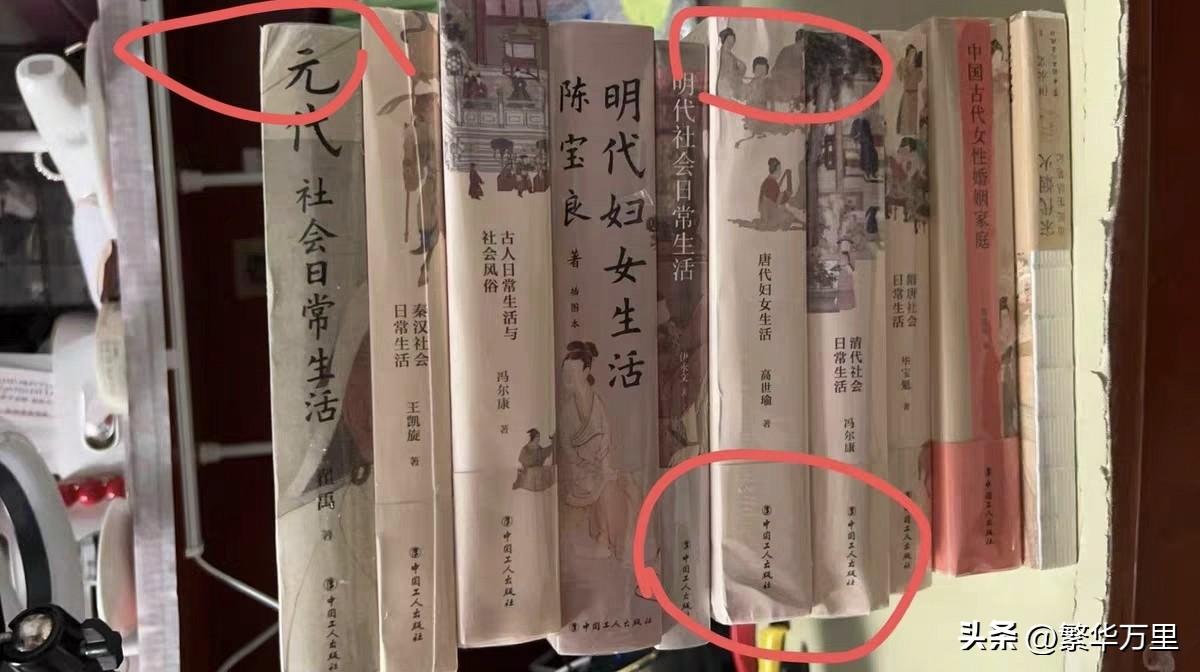 元代社会日常生活
翟禹 著
中国工人出版社
秦汉社会
日常生活
王凯旋 著
中国工人出版社
古人日常生活与
社会风俗
冯尔康 著
中国工人出版社
明代妇女生活
陈宝良 著 插图本
中国工人出版社
明代社会日常生活
伊永文
中国工人出版社
唐代妇女生活
高世瑜 著
中国工人出版社
清代社会
日常生活
冯尔康
中国工人出版社
隋唐社会
日常生活
毕宝魁 著
中国工人出版社
中国古代女性婚姻家庭
中国工人出版社
宋代烟火
头条 @繁华万里